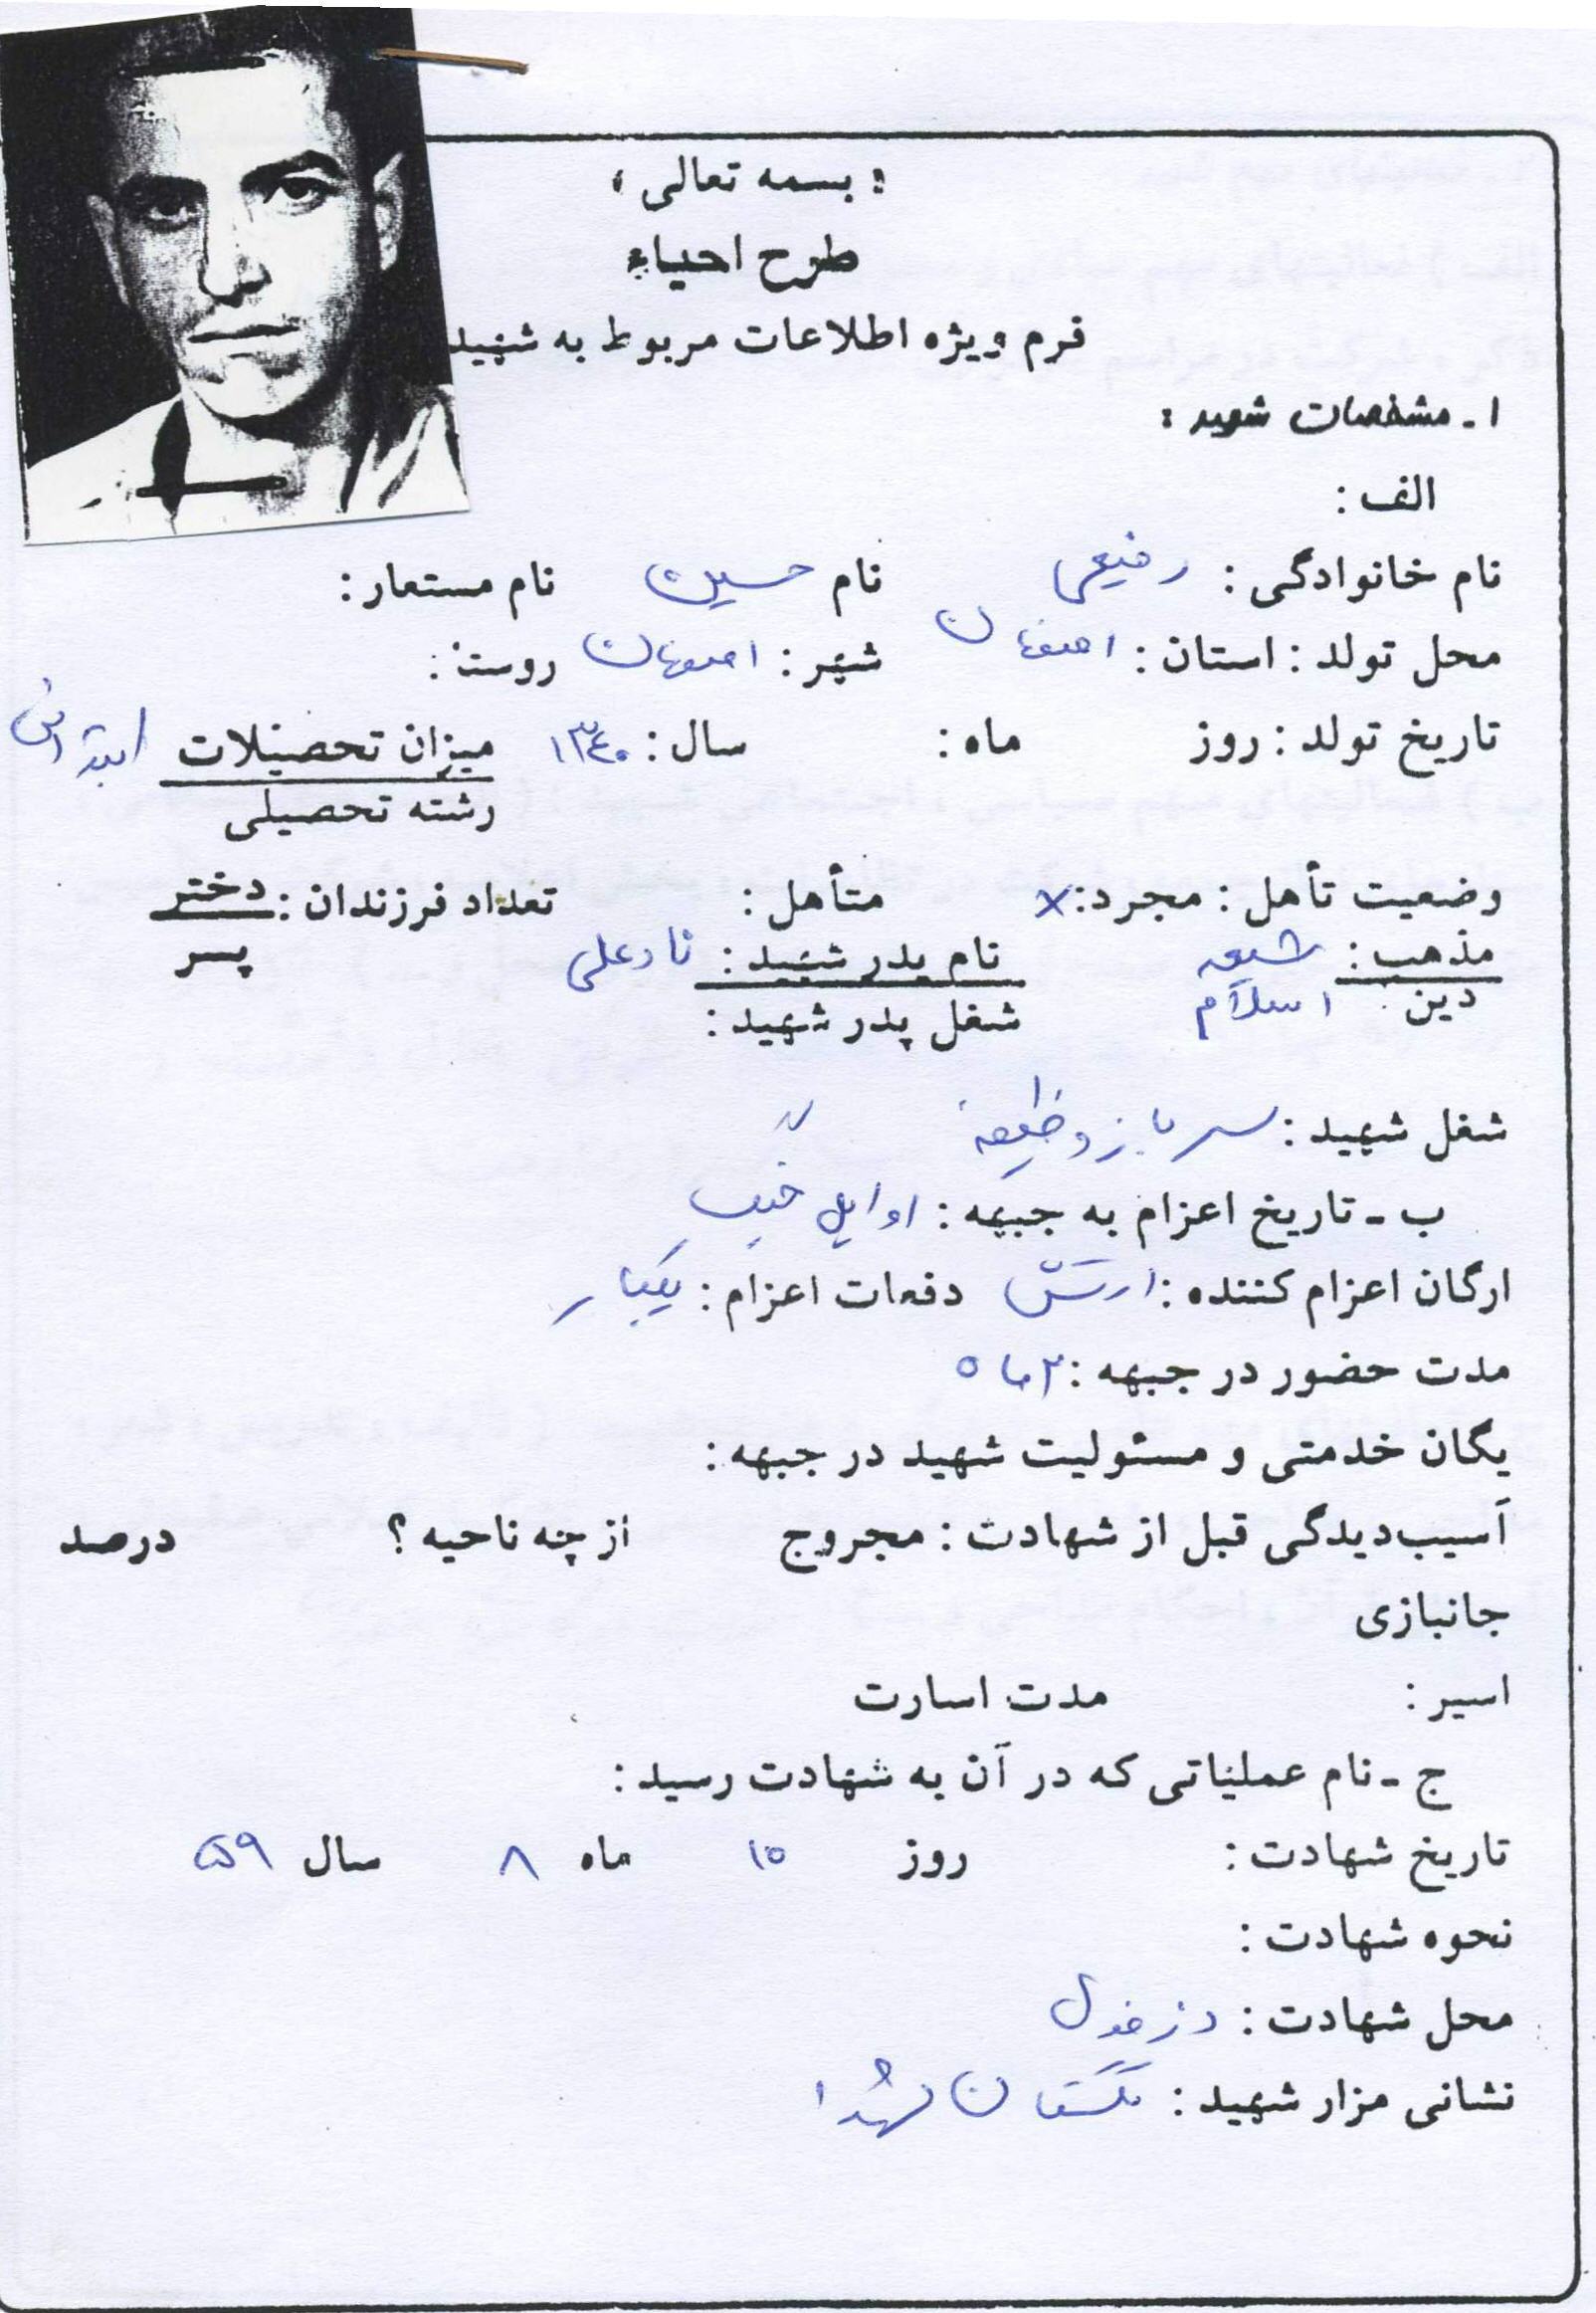 ؛ بسمه تعالی ؛
طرح احیاء
فرم ویژه اطلاعات مربوط به شهید
۱ ـ مشخصات شهید :
الف :
نام خانوادگی : رفیعی نام حسین نام مستعار :
محل تولد : استان : اصفهان شهر : اصفهان روستا :
تاریخ تولد : روز ماه : سال : ۱۳۴۰ میزان تحصیلات ابتدائی
رشته تحصیلی
وضعیت تأهل : مجرد : × متأهل : تعداد فرزندان : دختر
پسر
مذهب : شیعه نام پدر شهید : نادعلی
دین اسلام شغل پدر شهید :
شغل شهید : سرباز وظیفه
ب ـ تاریخ اعزام به جبهه : اوایل جنگ
ارگان اعزام کننده : ارتش دفعات اعزام : یکبار
مدت حضور در جبهه : ۲ ماه
یگان خدمتی و مسئولیت شهید در جبهه :
آسیب‌دیدگی قبل از شهادت : مجروح از چه ناحیه ؟ درصد
جانبازی
اسیر : مدت اسارت
ج ـ نام عملیاتی که در آن به شهادت رسید :
تاریخ شهادت : روز ۱۵ ماه ۸ سال ۵۹
نحوه شهادت :
محل شهادت : دزفول
نشانی مزار شهید : گلستان شهدا